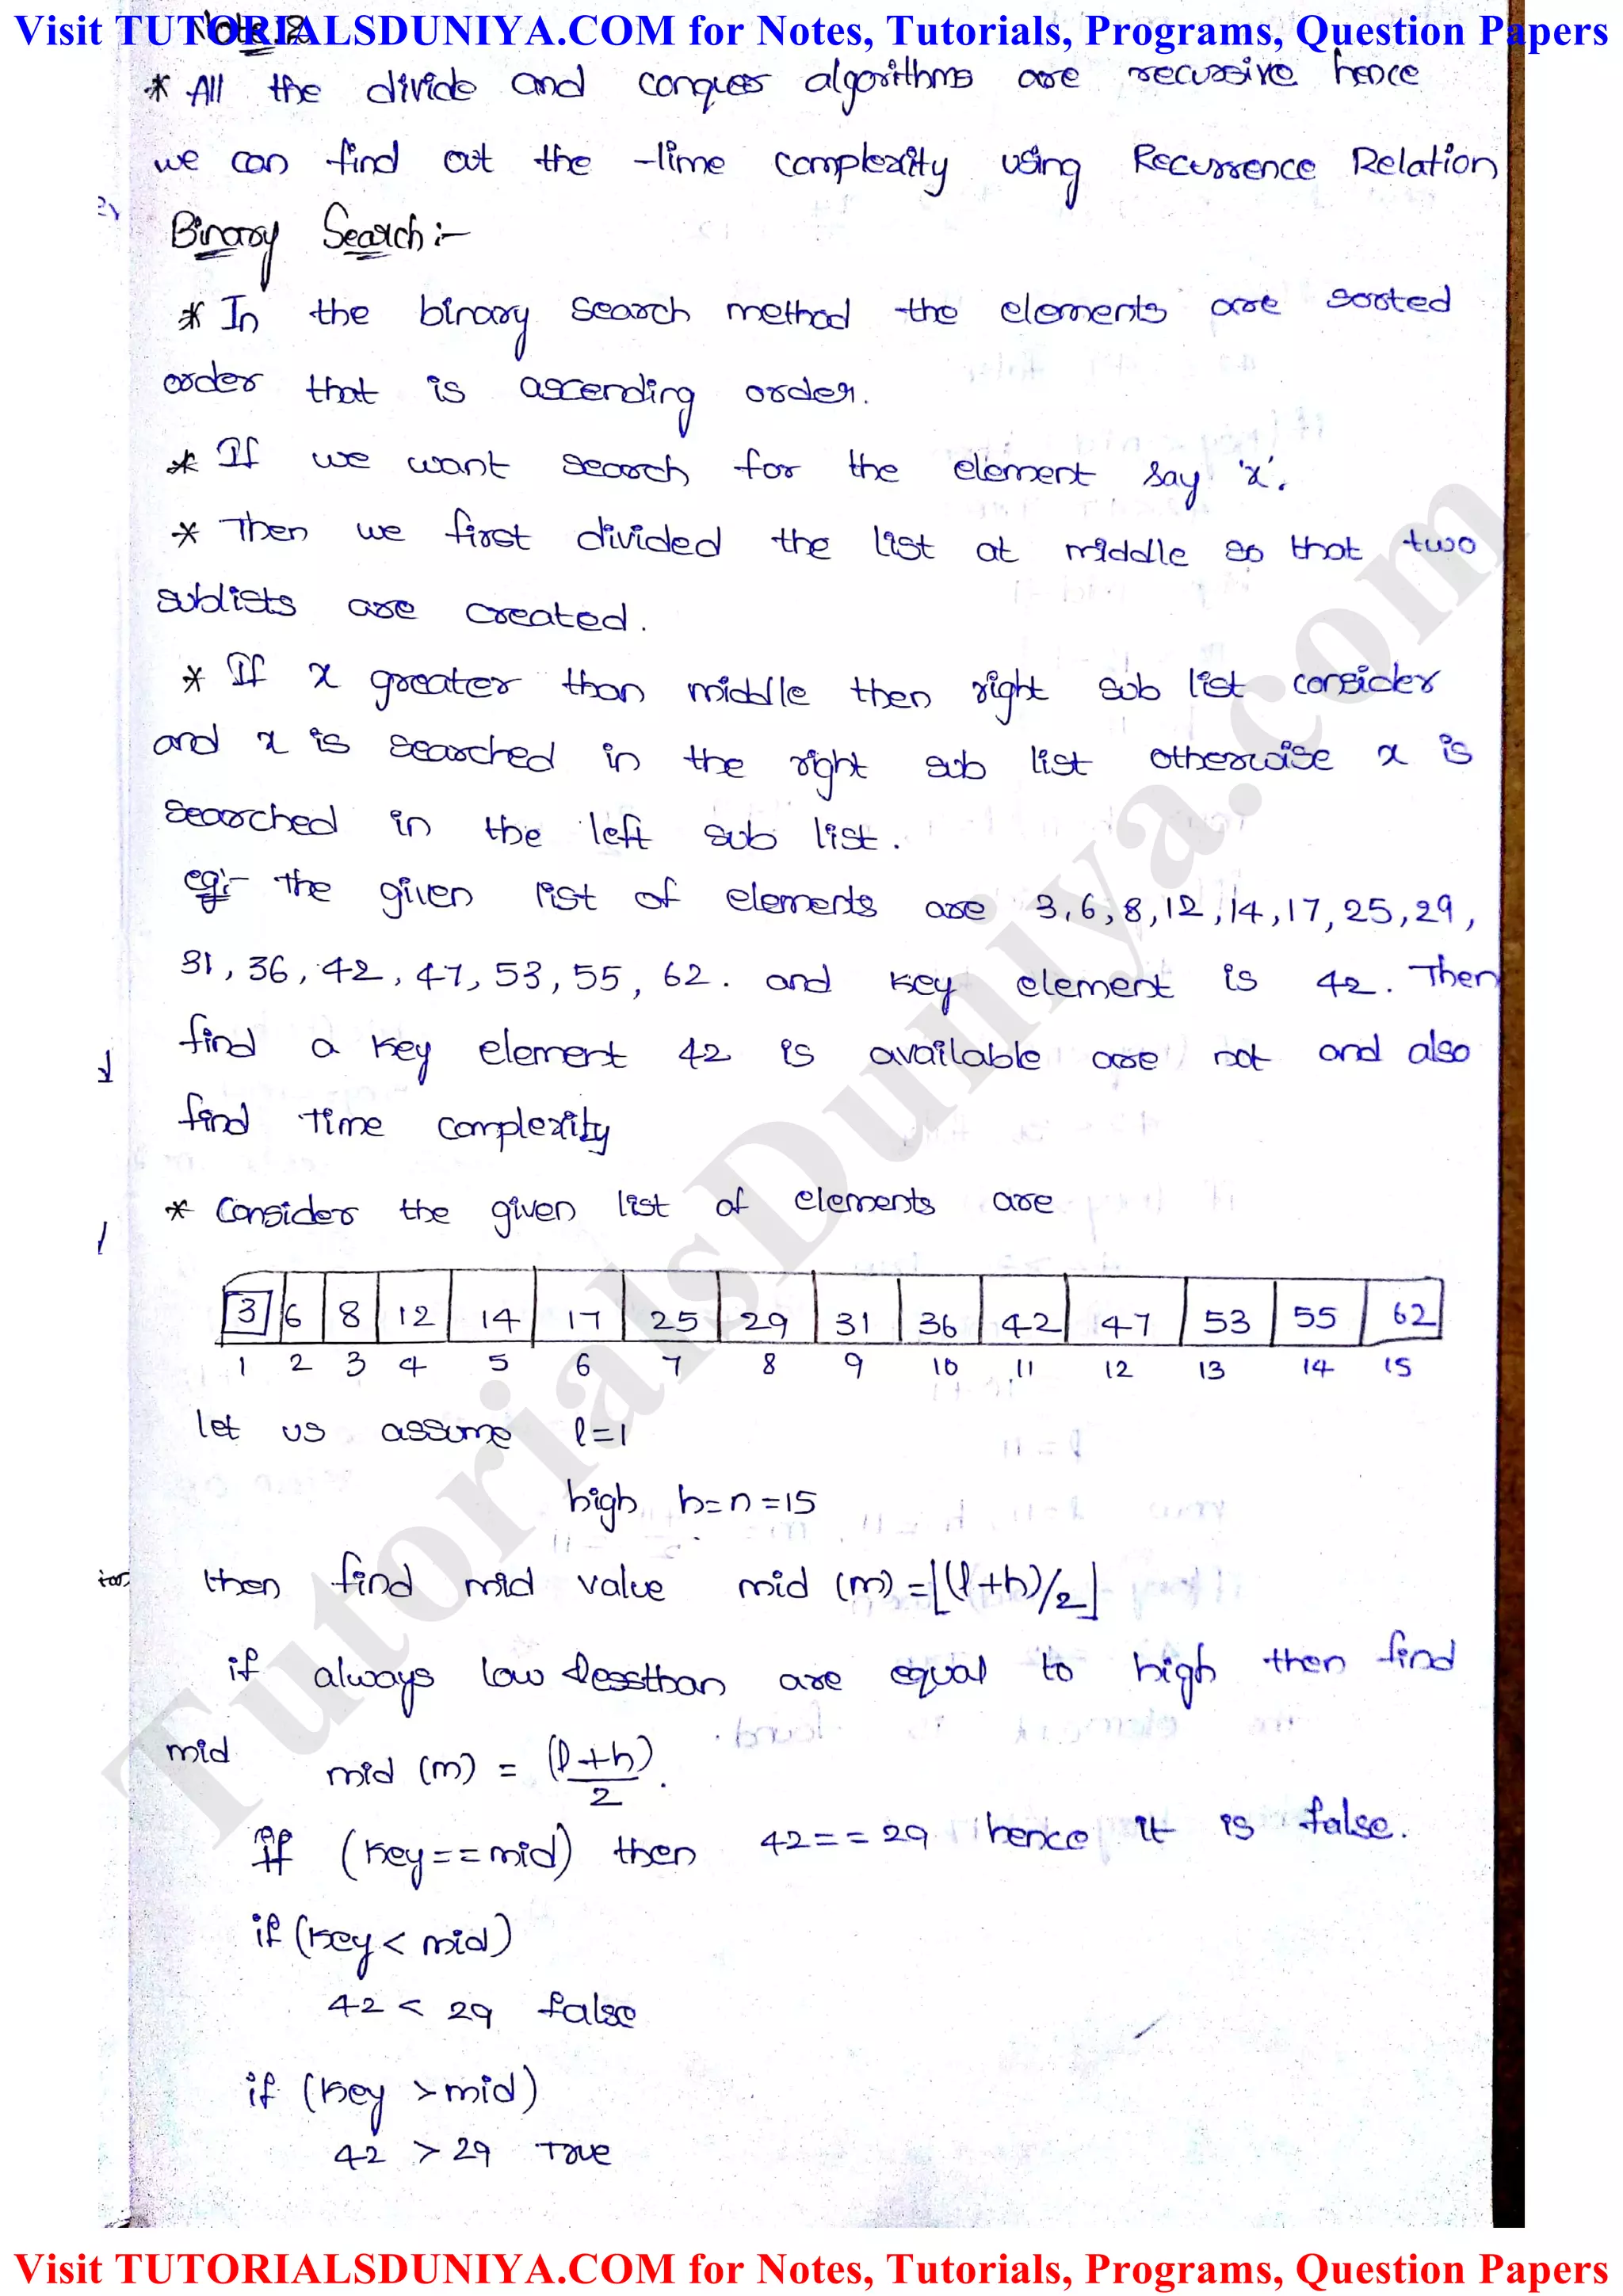 Visit TUTORIALSDUNIYA.COM for Notes, Tutorials, Programs, Question Papers
* All the divide and conquer algorithms are recursive hence
we can find out the time complexity using Recurrence Relation
Binary Search :-
* In the binary search method the elements are sorted
order that is ascending order.
* If we want search for the element say 'x'.
* Then we first divided the list at middle so that two
sublists are created.
* If x greater than middle then right sub list consider
and x is searched in the right sub list otherwise x is
searched in the left sub list.
eg:- the given list of elements are 3,6,8,12,14,17,25,29,
31,36,42,47,53,55,62. and key element is 42. Then
find a key element 42 is available are not and also
find Time complexity
* Consider the given list of elements are
3 6 8 12 14 17 25 29 31 36 42 47 53 55 62
1 2 3 4 5 6 7 8 9 10 11 12 13 14 15
let us assume l=1
high h=n=15
then find mid value mid (m) =⌊(l+h)/2⌋
if always low lessthan are equal to high then find
mid mid (m) = (l+h)/2.
If (key==mid) then 42==29 hence it is false.
if (key < mid)
42 < 29 false
if (key > mid)
42 > 29 True
TutorialsDuniya.com
Visit TUTORIALSDUNIYA.COM for Notes, Tutorials, Programs, Question Papers